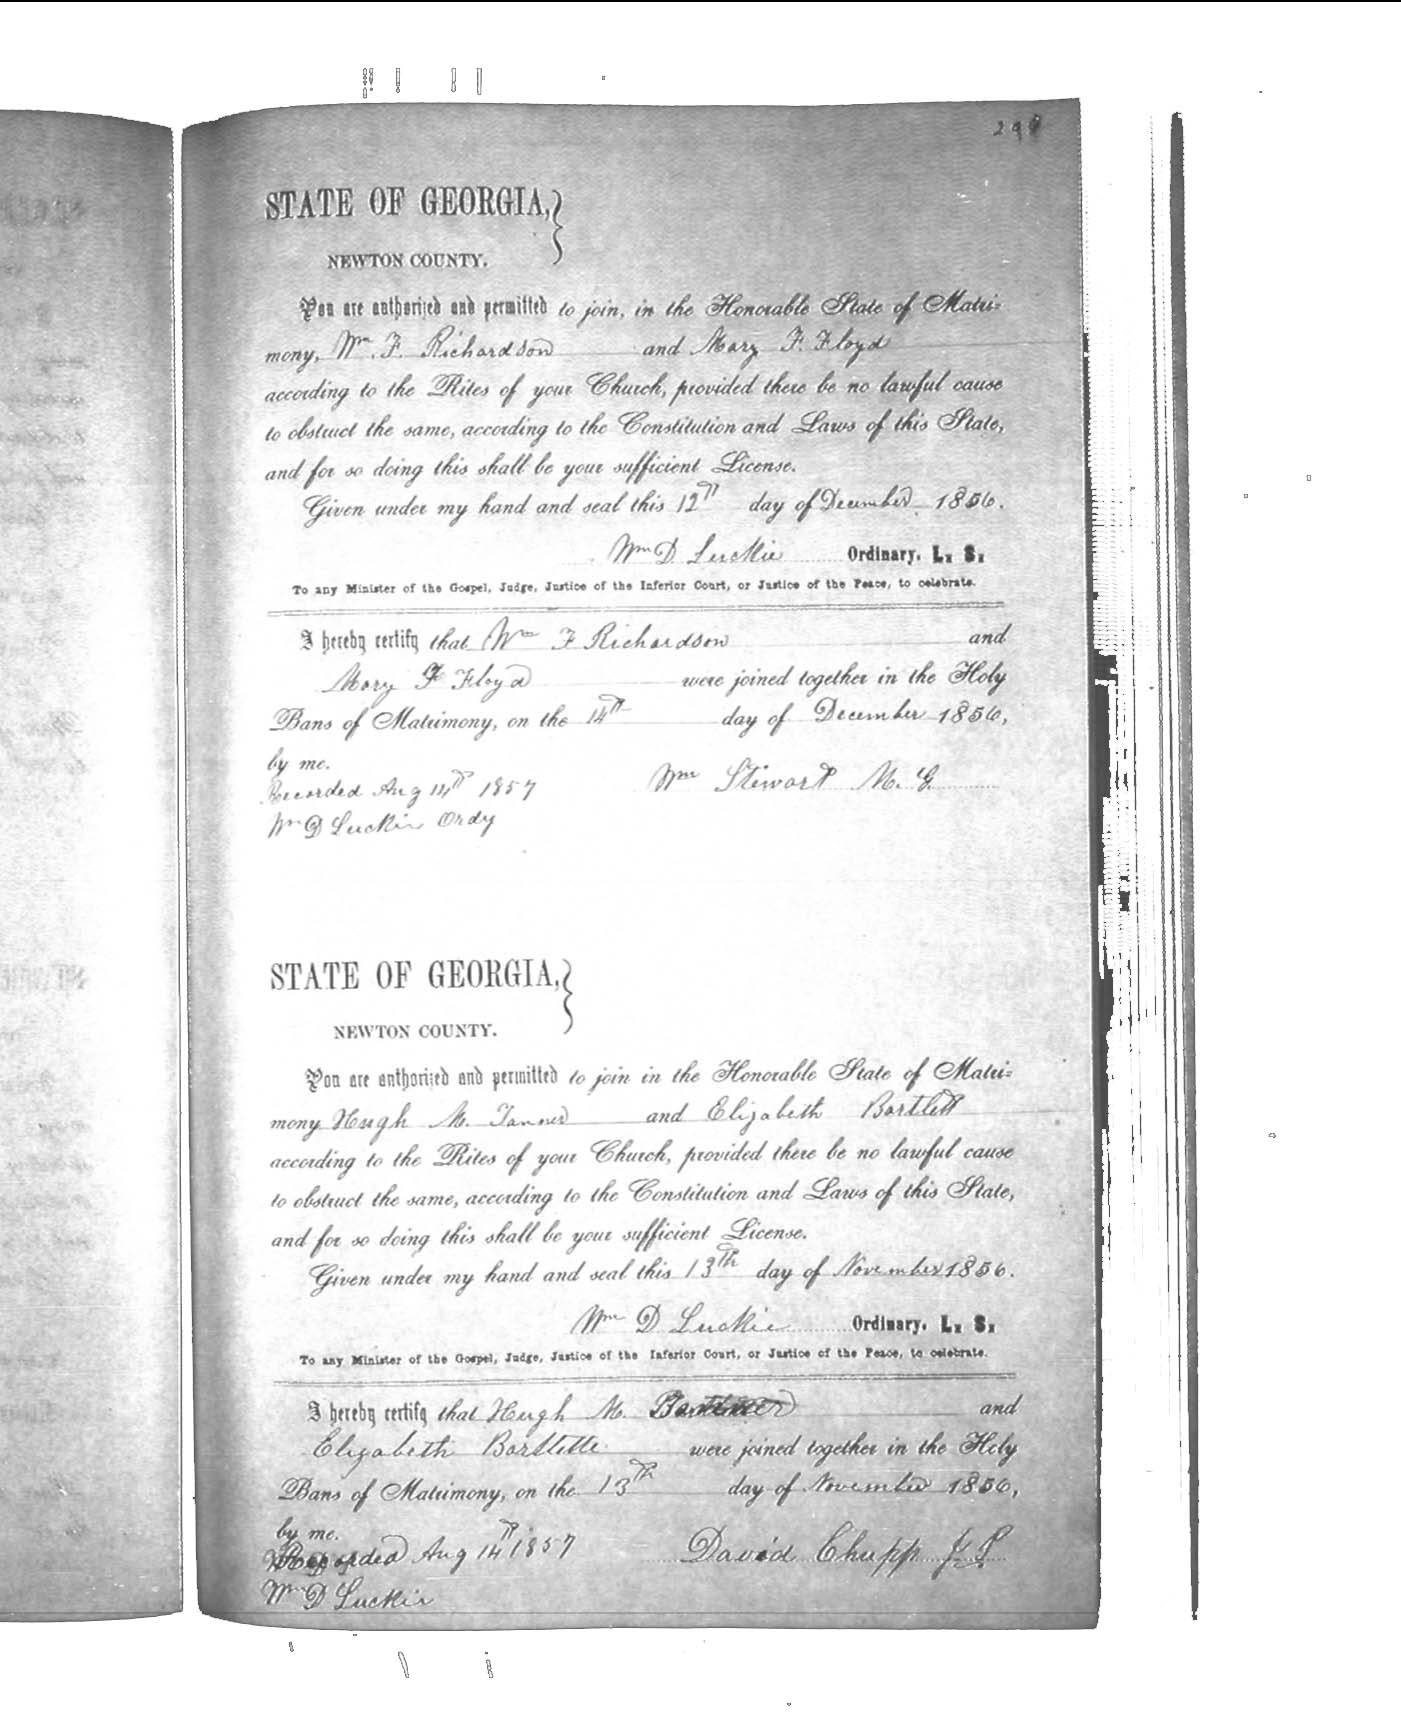 STATE OF GEORGIA,
NEWTON COUNTY.
You are authorized and permitted to join, in the Honorable State of Matri-
mony, Wm. F. Richardson and Mary F. Floyd
according to the Rites of your Church, provided there be no lawful cause
to obstruct the same, according to the Constitution and Laws of this State,
and for so doing this shall be your sufficient License.
Given under my hand and seal this 12th day of December 1856.
Wm D Luckie Ordinary. L. S.
To any Minister of the Gospel, Judge, Justice of the Inferior Court, or Justice of the Peace, to celebrate.
I hereby certify that Wm F Richardson and
Mary F Floyd were joined together in the Holy
Bans of Matrimony, on the 14th day of December 1856,
by me.
Recorded Aug 14th 1857 Wm Stewart M. G.
Wm D Luckie Ordy
STATE OF GEORGIA,
NEWTON COUNTY.
You are authorized and permitted to join in the Honorable State of Matri-
mony Hugh M. Tanner and Elizabeth Bartlett
according to the Rites of your Church, provided there be no lawful cause
to obstruct the same, according to the Constitution and Laws of this State,
and for so doing this shall be your sufficient License.
Given under my hand and seal this 13th day of November 1856.
Wm D Luckie Ordinary. L. S.
To any Minister of the Gospel, Judge, Justice of the Inferior Court, or Justice of the Peace, to celebrate.
I hereby certify that Hugh M. and
Elizabeth Bartlette were joined together in the Holy
Bans of Matrimony, on the 13th day of November 1856,
by me.
Recorded Aug 14th 1857 David Chupp J. P.
Wm D Luckie